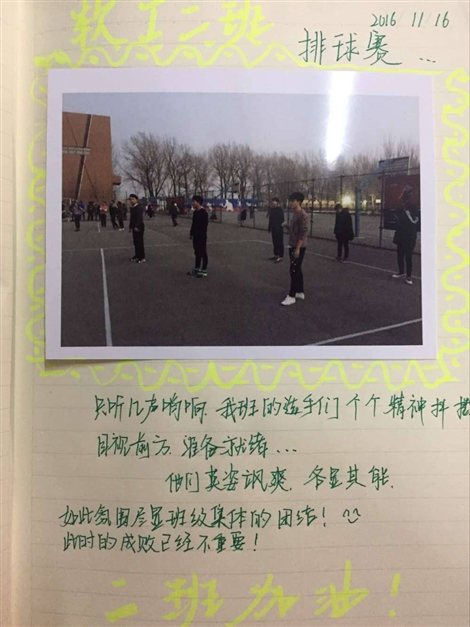 软工二班
2016 11/16
排球赛...
只听几声哨响，我班的选手们个个精神抖擞
目视前方，准备就绪...
他们英姿飒爽，各显其能.
如此氛围尽显班级集体的团结！
此时的成败已经不重要！
二班加油！